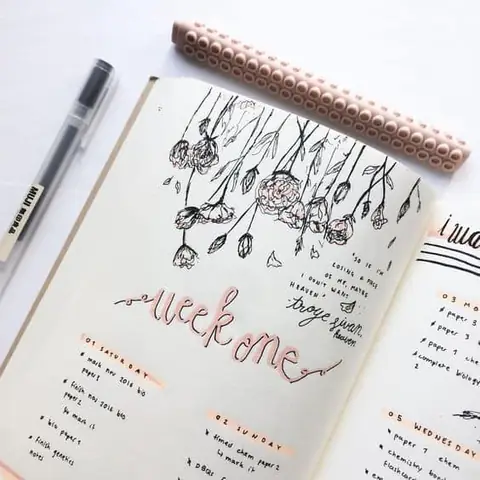 MUJI 無印良品
"SO IF I'M
LOSING A PIECE
OF ME, MAYBE
I DON'T WANT
HEAVEN"
troye sivan,
heaven
week one
01 SATURDAY
mark nov 2016 bio
paper 1
finish nov 2016 bio
paper 2
to mark it
bio paper 1
finish genetics
notes
02 SUNDAY
timed chem paper 2
to mark it
DBQs
03 MO
paper 3
paper 3
paper 1 chem
complete biology
2
05 WEDNESDAY
paper 1 chem
chemistry
flashcard